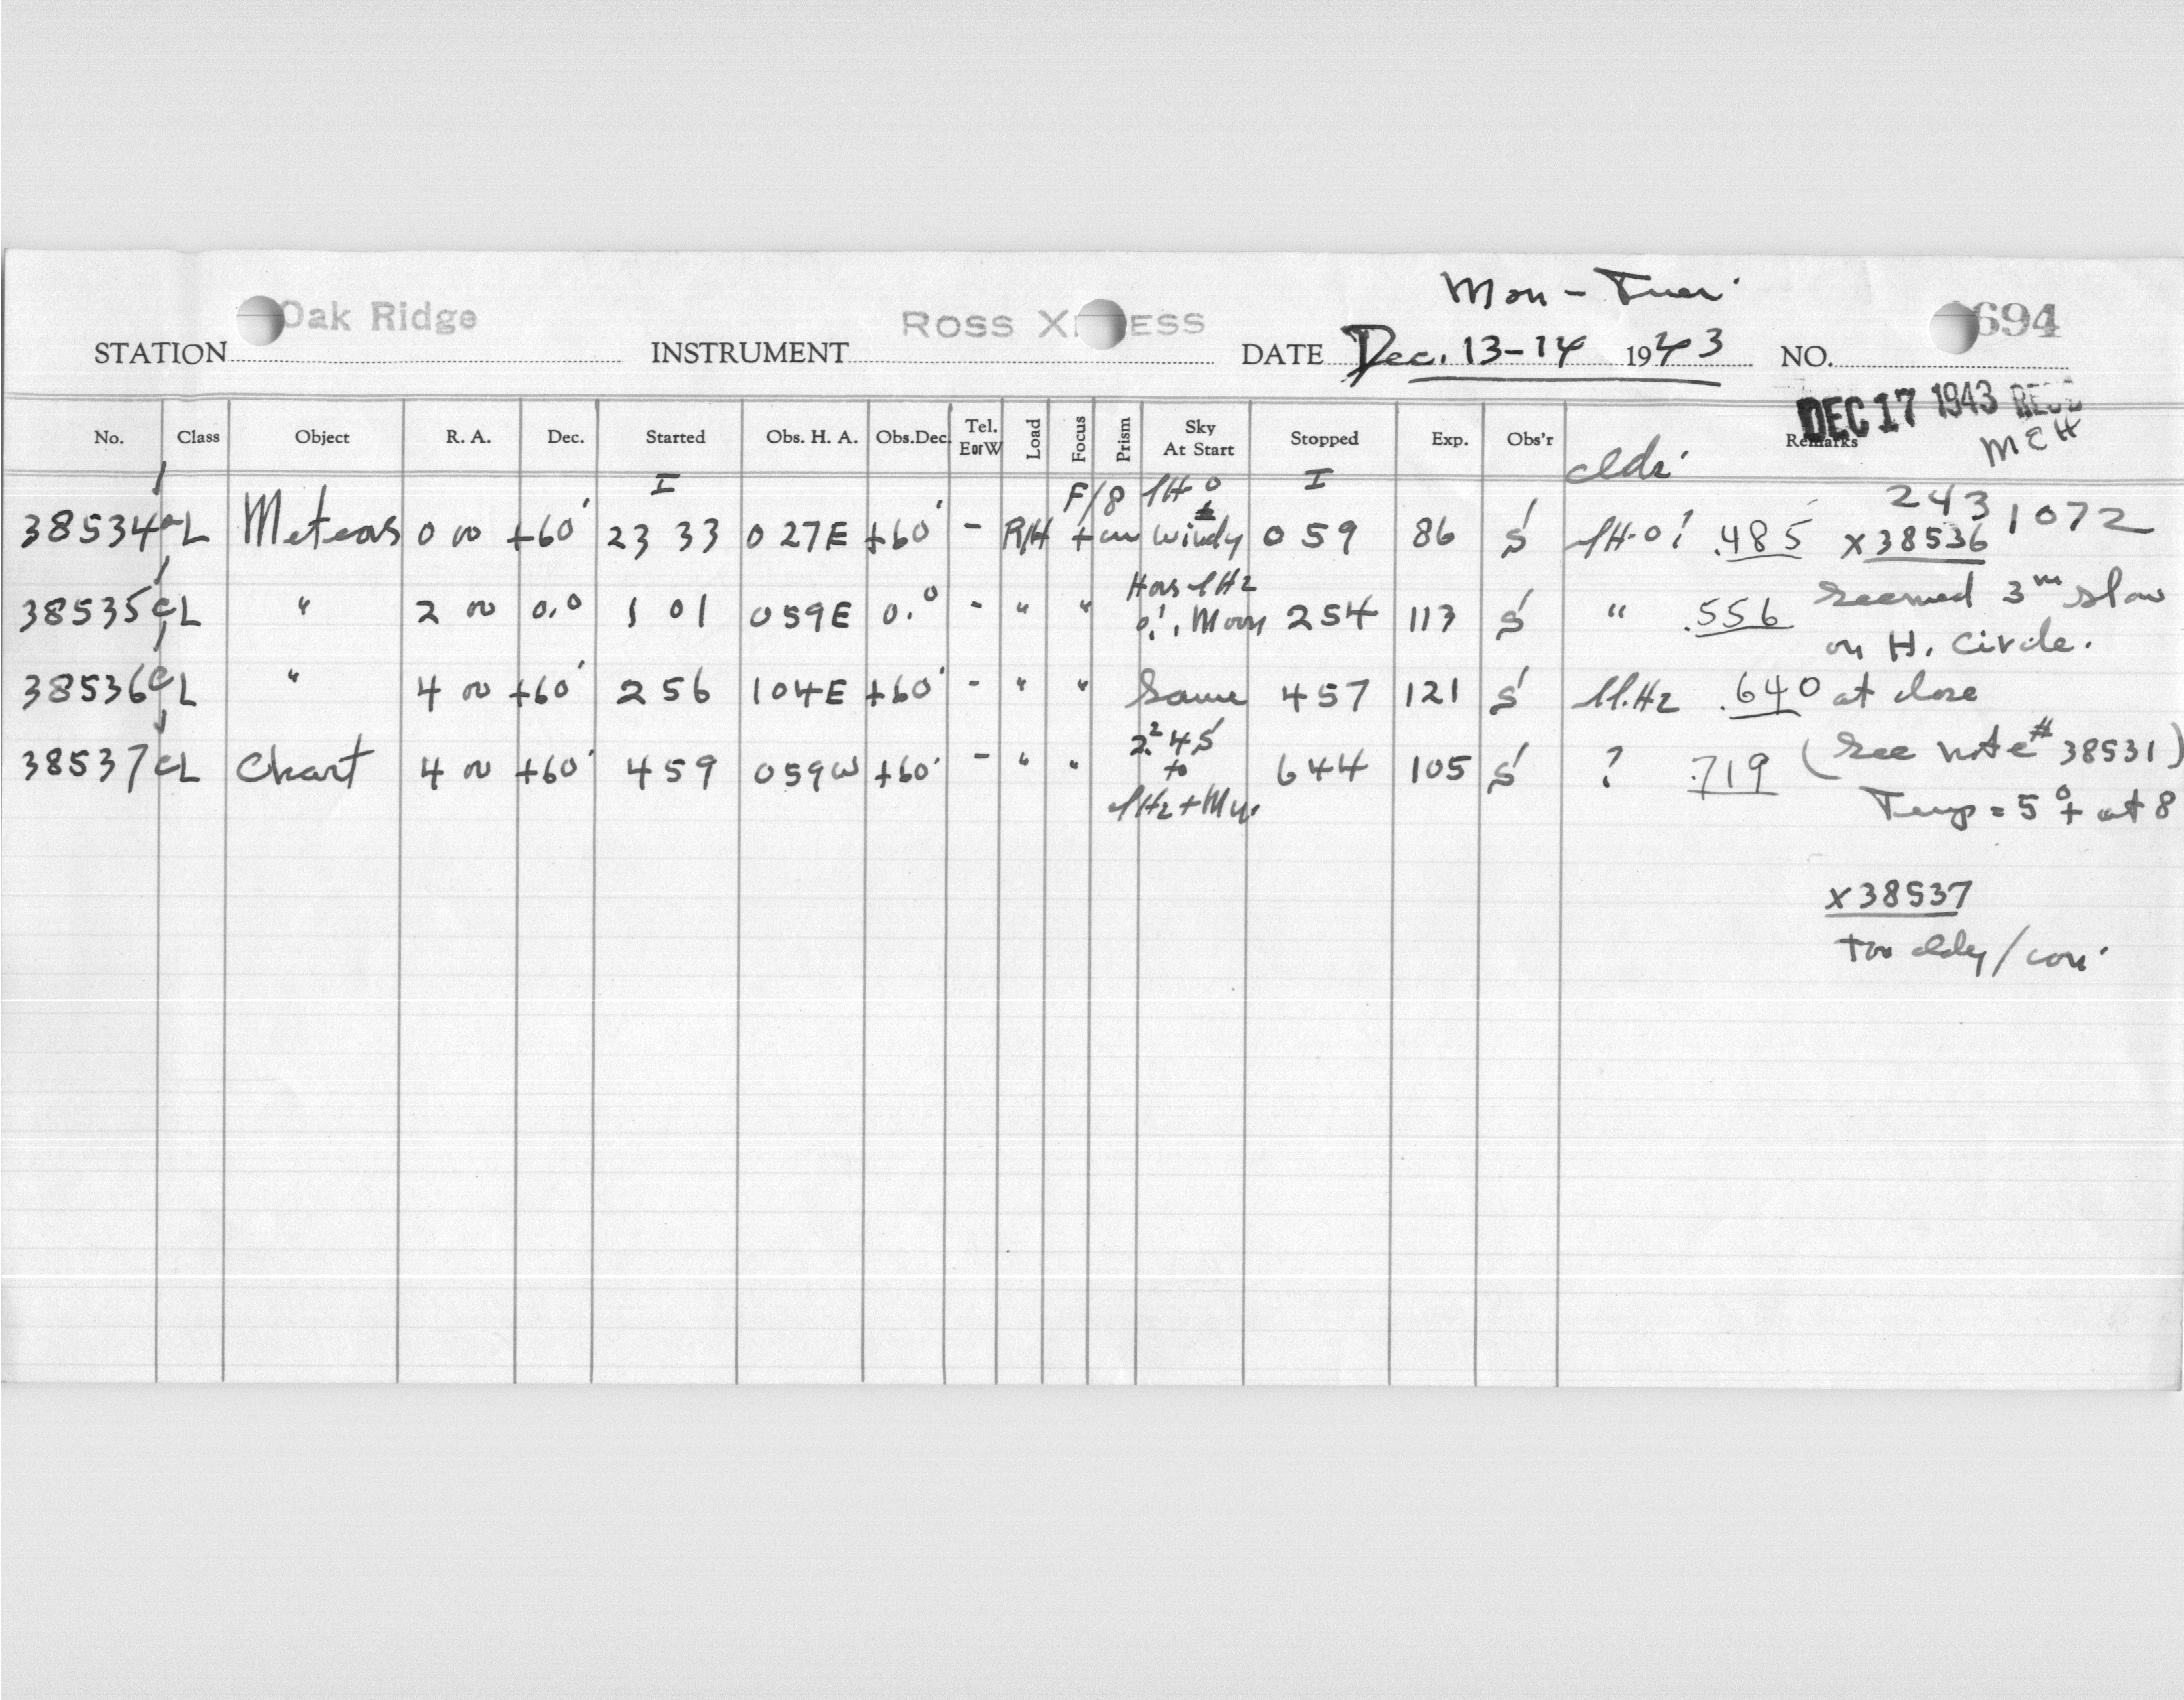 Mon - Tues.
STATION Oak Ridge INSTRUMENT ROSS X ESS DATE Dec. 13-14 1943 NO. 694
DEC 17 1943 REC'D
MEH
No. Class Object R. A. Dec. Started Obs. H. A. Obs.Dec. Tel. EorW Load Focus Prism Sky At Start Stopped Exp. Obs'r Remarks
clds.
I F/8 I 2431072
38534 L Meteors 0 00 +60° 23 33 0 27E +60° - R/H + Windy 0 59 86 S .485 x38536
38535 cL " 2 00 0.0 1 01 0 59E 0.0 - " " Moon 2 54 113 S " .556 seemed 3m slow
on H. Circle.
38536 cL " 4 00 +60° 2 56 1 04E +60° - " " Same 4 57 121 S .640 at close
38537 cL Chart 4 00 +60° 4 59 0 59W +60° - " " to 6 44 105 S ? .719 (See note # 38531)
Temp = 5°+ at 8
x38537
too cldy/